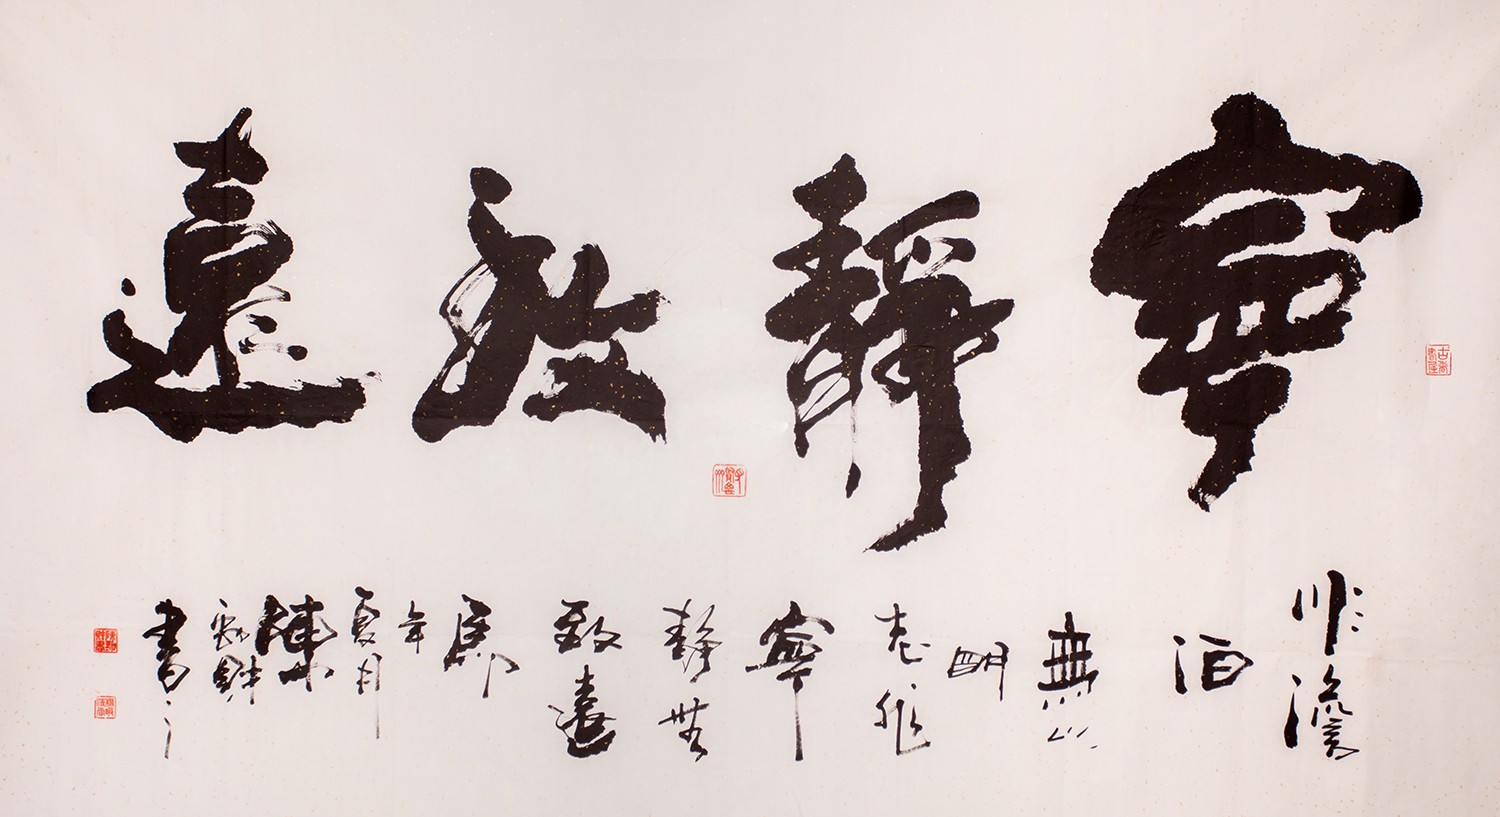 寧靜致遠
非澹泊無以明志非寧靜無致遠馬年夏月陳書之